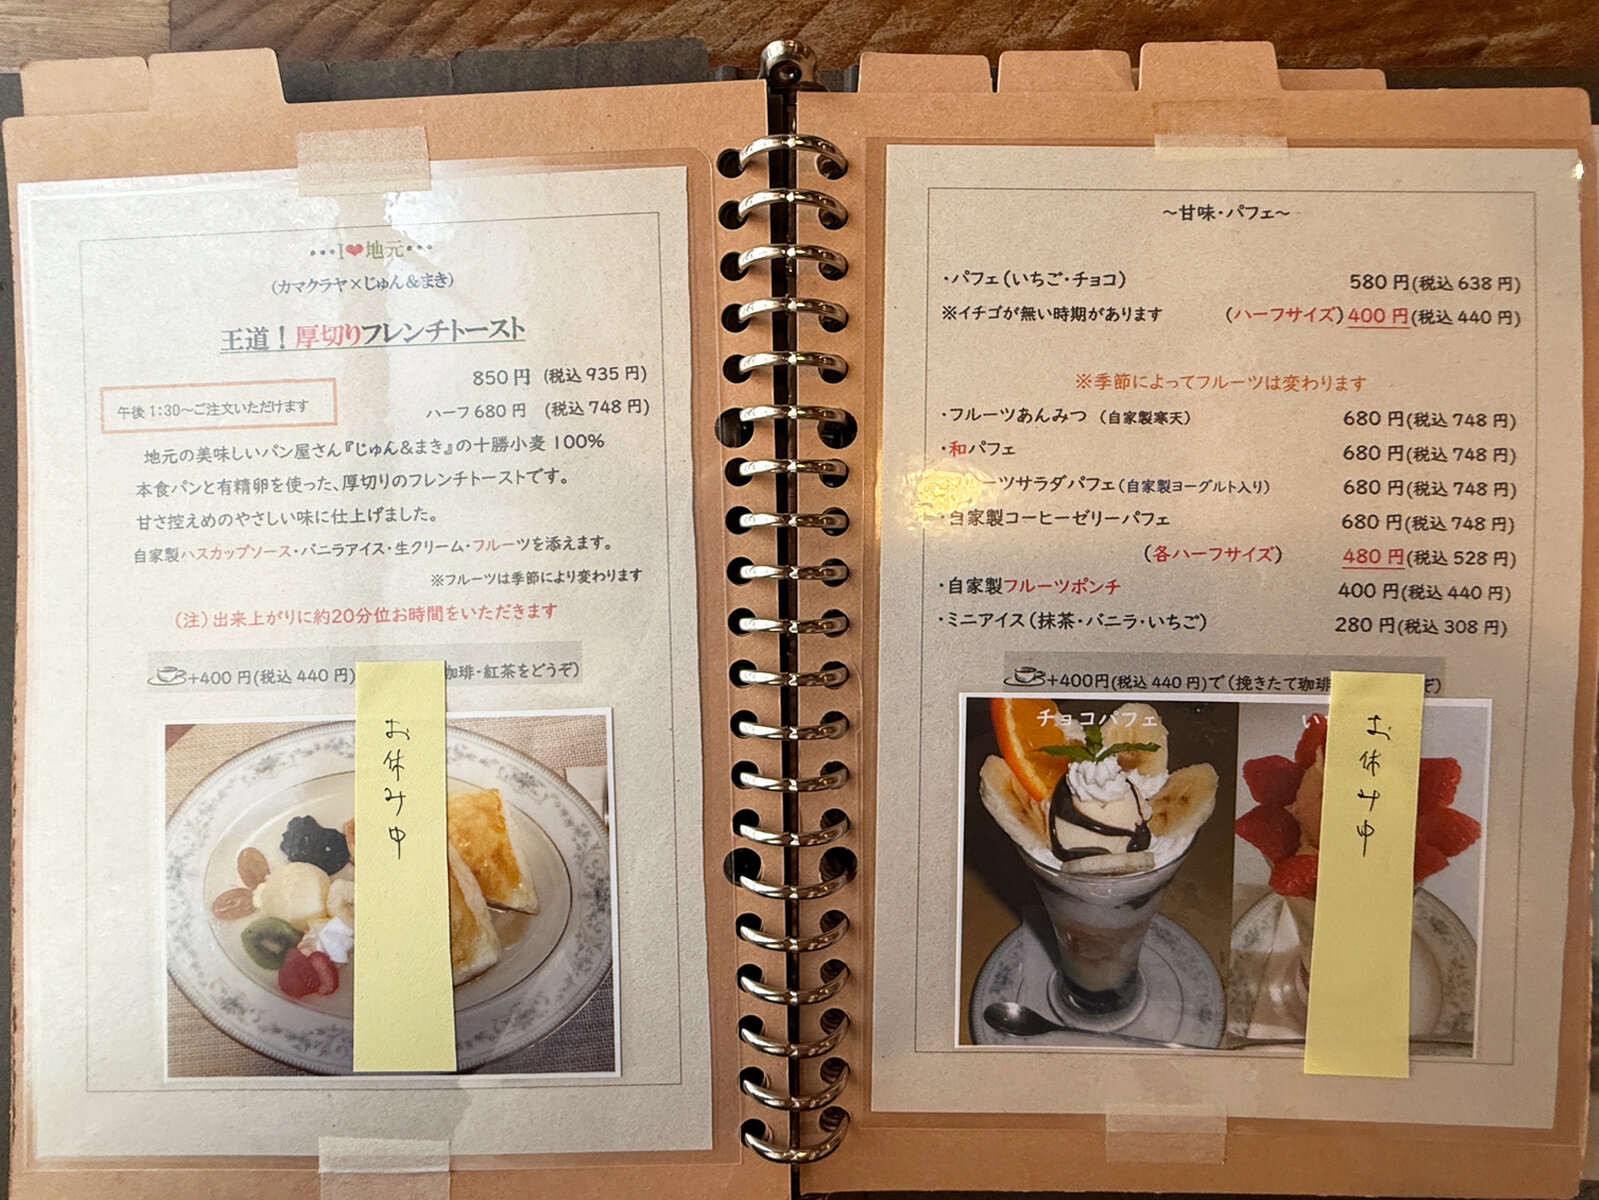 •••I❤地元•••
(カマクラヤ×じゅん&まき)
王道！厚切りフレンチトースト
850円 (税込935円)
午後1:30～ご注文いただけます
ハーフ680円 (税込748円)
地元の美味しいパン屋さん『じゅん&まき』の十勝小麦100%
本食パンと有精卵を使った、厚切りのフレンチトーストです。
甘さ控えめのやさしい味に仕上げました。
自家製ハスカップソース・バニラアイス・生クリーム・フルーツを添えます。
※フルーツは季節により変わります
(注)出来上がりに約20分位お時間をいただきます
+400円(税込440円) 珈琲・紅茶をどうぞ)
お休み中
～甘味・パフェ～
・パフェ(いちご・チョコ) 580円(税込638円)
※イチゴが無い時期があります (ハーフサイズ)400円(税込440円)
※季節によってフルーツは変わります
・フルーツあんみつ (自家製寒天) 680円(税込748円)
・和パフェ 680円(税込748円)
ーツサラダパフェ(自家製ヨーグルト入り) 680円(税込748円)
・自家製コーヒーゼリーパフェ 680円(税込748円)
(各ハーフサイズ) 480円(税込528円)
・自家製フルーツポンチ 400円(税込440円)
・ミニアイス(抹茶・バニラ・いちご) 280円(税込308円)
+400円(税込440円)で(挽きたて珈琲 ぞ)
チョコパフェ
い
お休み中